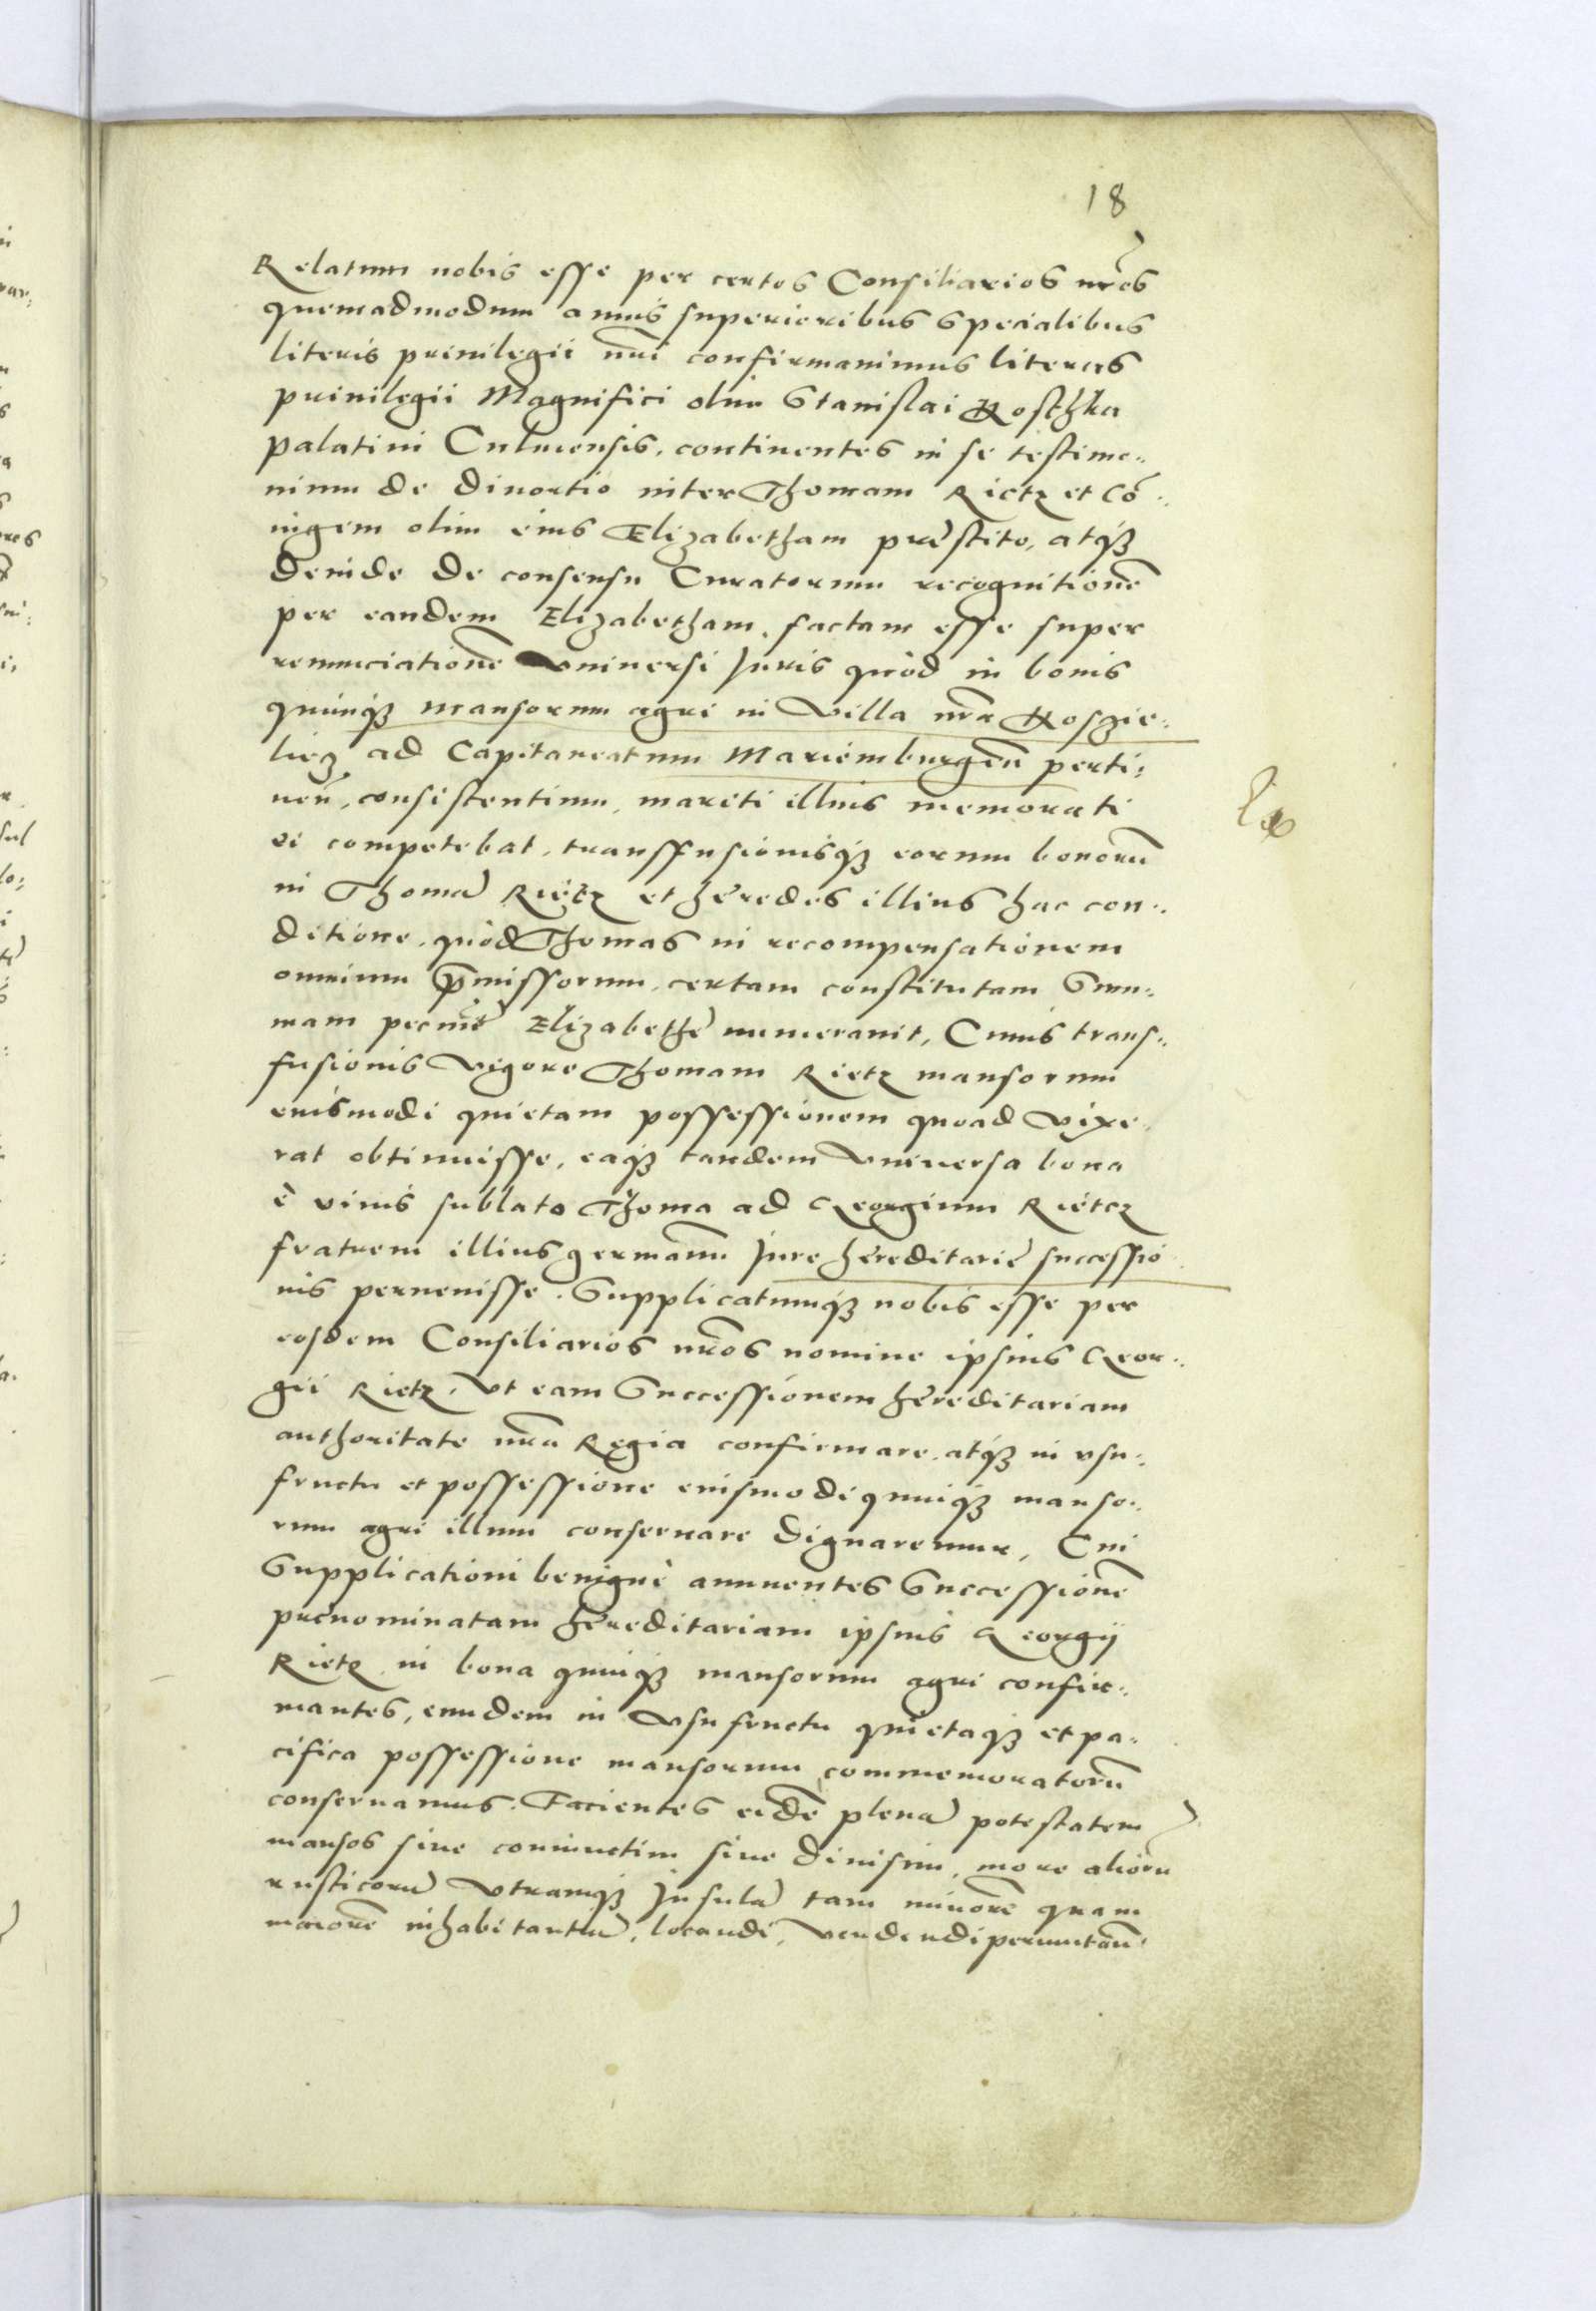 18
Relatum nobis esse per certos Consiliarios nr̃os
quemadmodum annis superioribus specialibus
literis priuilegii nr̃i confirmauimus literas
priuilegii Magnifici olim Stanislai Kosthka
palatini Culmensis, continentes in se testimo:
nium de diuortio inter Thomam Rietz et Cõ:
iugem olim eius Elizabetham prestito, atq3
deinde de consensu Curatorum recognitionẽ
per eandem Elizabetham factam esse super
renunciationẽ vniuersi Juris quòd in bonis
quinq3 mansorum agri in Villa nr̃a Koszie:
licz ad Capitaneatum Mariemburgeñ perti:
neñ, consistentium, mariti illius memorati
ei competebat, transfusionisq3 eorum bonorũ
in Thomã Rietz et heredes illius hac con:
ditione, quòd Thomas in recompensationem
omnium p̃missorum, certam constitutam Sum:
mam pecunie Elizabethe numerauit, Cuius trans:
fusionis Vigore Thomam Rietz mansorum
eiusmodi quietam possessionem quoad Vixe:
rat obtinuisse, eaq3 tandem Vniuersa bona
è viuis sublato Thoma ad Georgium Rietcz
fratrem illius germanũ Jure hereditarie successio
nis peruenisse. Supplicatumq3 nobis esse per
eosdem Consiliarios nr̃os nomine ipsius Geor:
gii Rietz, Vt eam Successionem hereditariam
authoritate nr̃a Regia confirmare, atq3 in vsu:
fructu et possessione eiusmodi quinq3 manso:
rum agri illum conseruare dignaremur, Cui
Supplicationi benignè annuentes Successionẽ
prenominatam hereditariam ipsius Georgij
Rietz in bona quinq3 mansorum agri confir:
mantes, eundem in Vsufructu quietaq3 et pa:
cifica possessione mansorum commemoratorũ
conseruamus. Facientes eidẽ plenã potestatem
mansos siue coniunctim siue diuisim, more aliorũ
rusticorũ Vtramq3 Insulã tam minorẽ quam
maiorẽ inhabitantiũ, locandi, vendendi permutañ